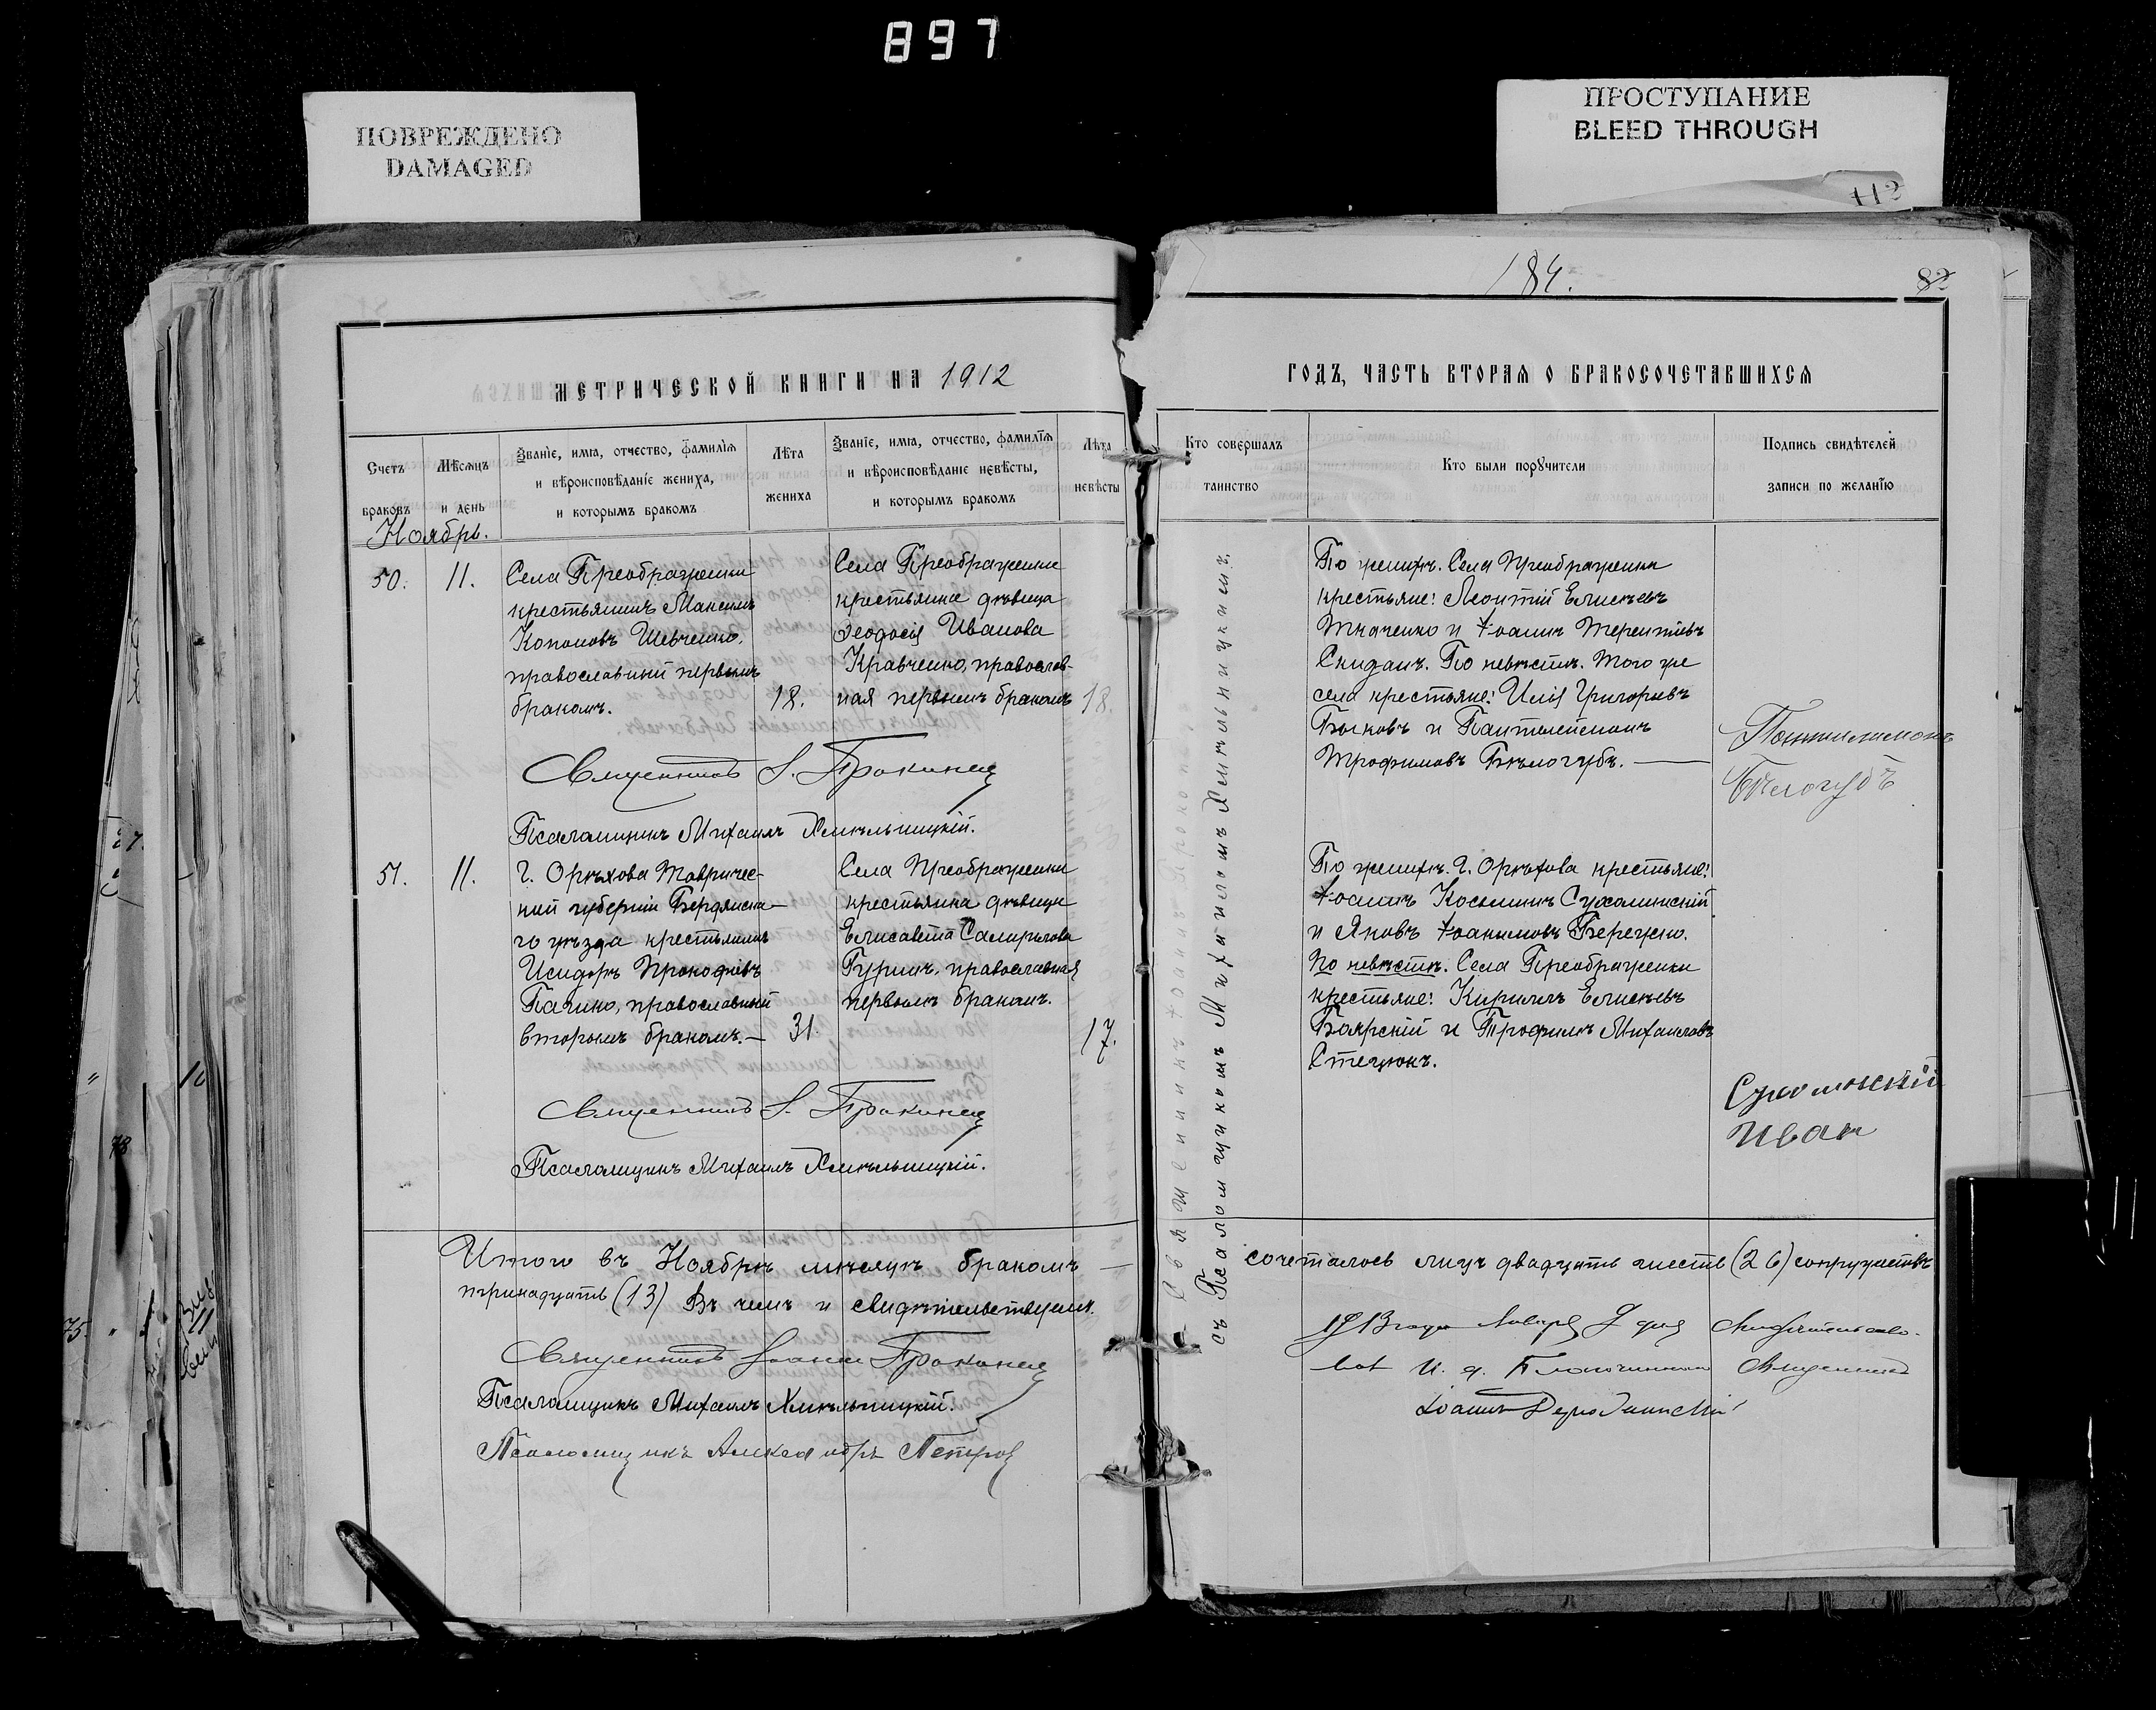 897
ПОВРЕЖДЕНО
DAMAGED
ПРОСТУПАНИЕ
BLEED THROUGH
112
184.
82
МЕТРИЧЕСКОЙ КНИГИ НА 1912
ГОДЪ, ЧАСТЬ ВТОРАЯ О БРАКОСОЧЕТАВШИХСЯ
Счетъ
браковъ
Мѣсяцъ
и день
Званіе, имя, отчество, фамилія
и вѣроисповѣданіе жениха,
и которымъ бракомъ
Лѣта
жениха
Званіе, имя, отчество, фамилія
и вѣроисповѣданіе невѣсты,
и которымъ бракомъ
Лѣта
невѣсты
Кто совершалъ
таинство
Кто были поручители
Подпись свидѣтелей
записи по желанію
Ноябрь.
50.
11.
Села Преображенки
крестьянинъ Максимъ
Кононовъ Шевченко,
православный первымъ
бракомъ.
18.
Села Преображенки
крестьянка дѣвица
Ѳеодосія Иванова
Кравченко, православ-
ная первымъ бракомъ
18.
По женихѣ. Села Преображенки
крестьяне: Леонтій Елисѣевъ
Ткаченко и Іоаннъ Терентіевъ
Скиданъ. По невѣстѣ. Того же
села крестьяне: Илія Григорьевъ
Быковъ и Пантелеймонъ
Трофимовъ Бѣлогубъ.
Пантилимонъ
Белогубъ
Священникъ І. Прокопец
Псаломщикъ Михаилъ Хмѣльницкій.
51.
11.
Г. Орѣхова Тавричес-
кой губерніи Бердянска-
го уѣзда крестьянинъ
Исидоръ Прокофіевъ
православный
вторымъ бракомъ.
31.
Села Преображенки
крестьянка дѣвица
Елисавета
Гуринъ, православная
первымъ бракомъ.
17.
По женихѣ. Г. Орѣхова крестьяне:
Іоаннъ Косьминъ Сухомлинскій
и Яковъ Іоакимовъ
По невѣстѣ. Села Преображенки
крестьяне: Кириллъ Елисѣевъ
Боярскій и Трофимъ Михаиловъ
Стецюкъ.
Иван
Священникъ І. Прокопец
Псаломщикъ Михаилъ Хмѣльницкій.
Священникъ Іоаннъ
съ Псаломщикомъ Михаиломъ Хмѣльницкимъ.
Итого въ Ноябрѣ мѣсяцѣ бракомъ сочеталось лицъ двадцать шесть (26) супружествъ
тринадцать (13) Въ чемъ и свидѣтельствуемъ.
Священникъ Іоаннъ Прокопец
Псаломщикъ Михаилъ Хмѣльницкій.
Псаломщикъ Александръ Петров
1913 года Января 9 дня Свидѣтельство-
вал И. д. Благочиннаго Священникъ
Іоаннъ